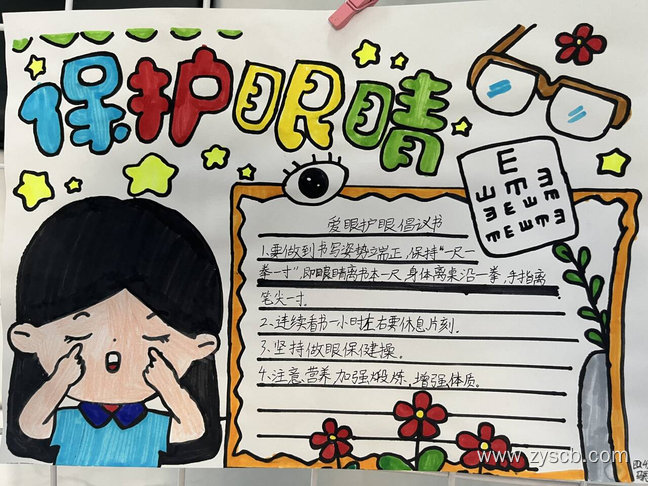 保护眼睛
爱眼护眼倡议书
1.要做到书写姿势端正,保持“一尺一
拳一寸”,即眼睛离书本一尺,身体离桌沿一拳,手指离
笔尖一寸.
2.连续看书一小时左右要休息片刻.
3.坚持做眼保健操。
4.注意营养,加强煅炼,增强体质。
www.zyscb.com